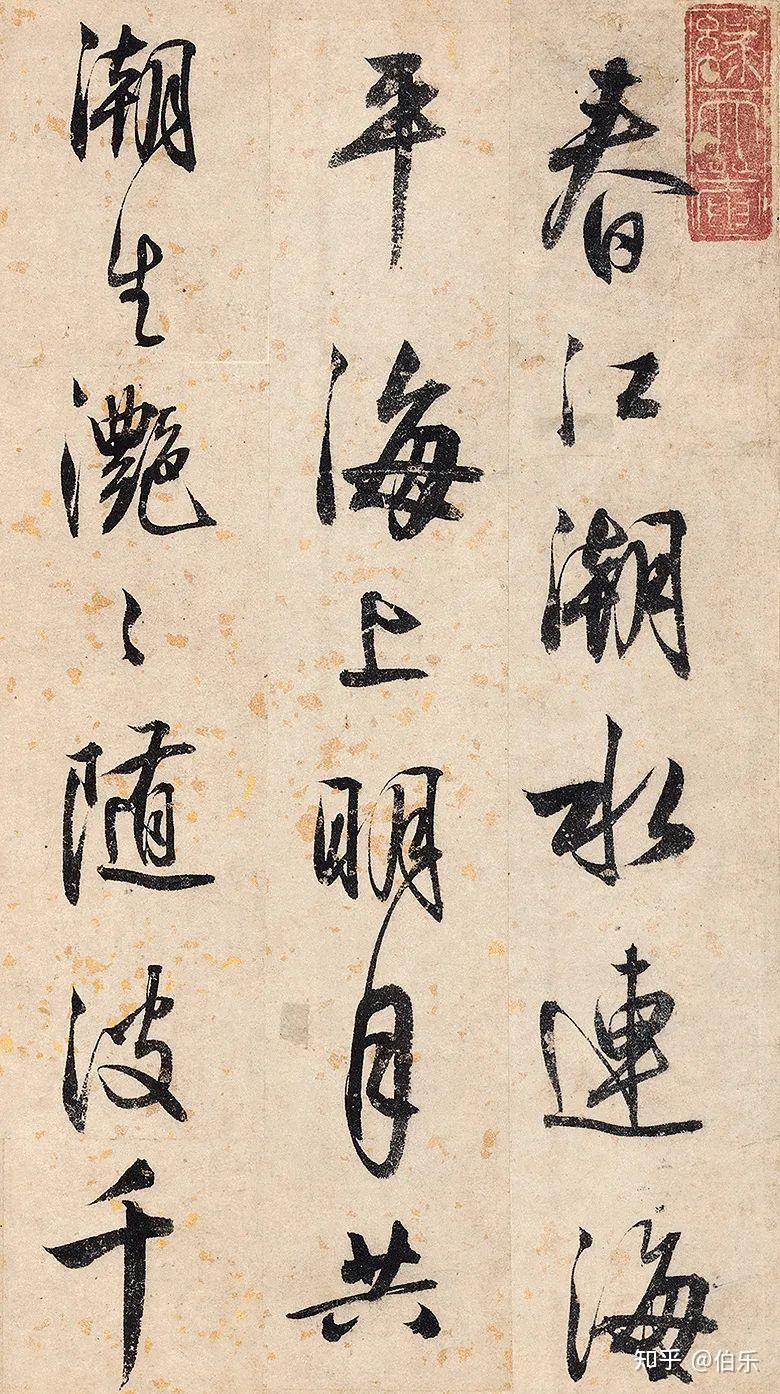 春江潮水連海
平海上明月共
潮生灧〻随波千
知乎 @伯乐